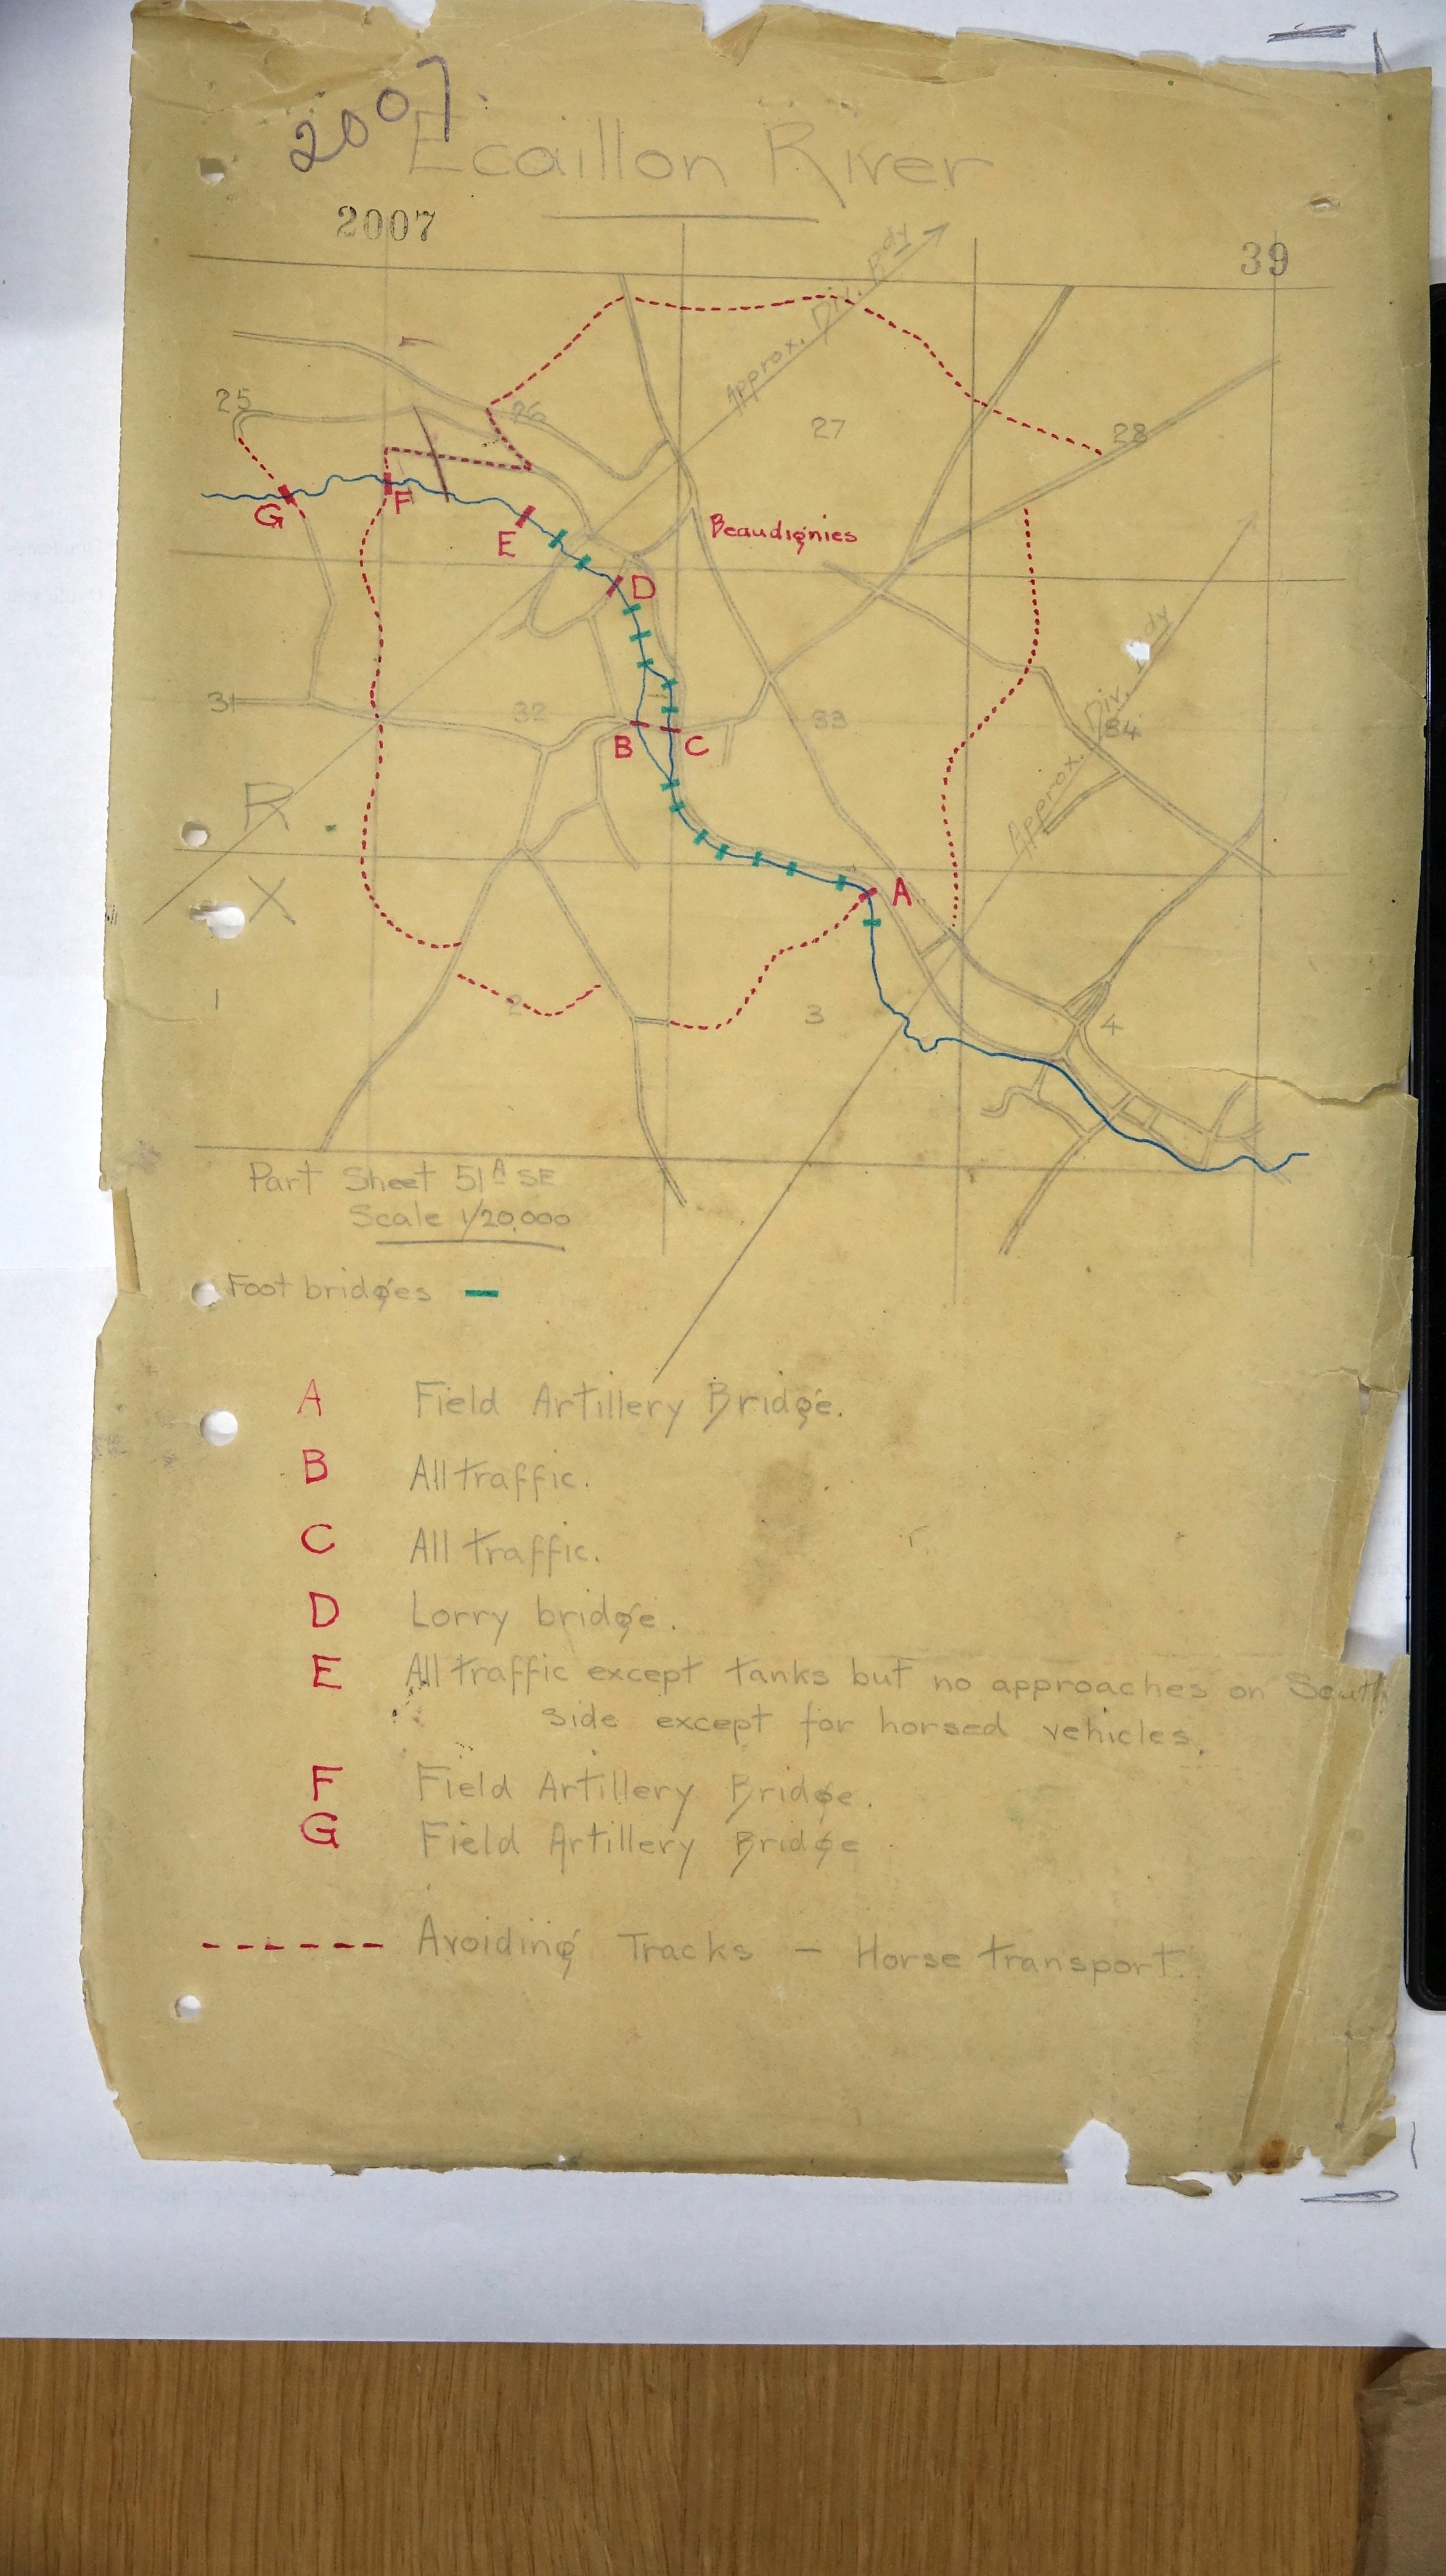 2007.
Ecaillon River
2007
39
Approx. Div. Bdy
25
26
27
28
G
F
E
Beaudignies
D
31
32
33
34
B
C
Approx. Div. Bdy
R
X
A
1
2
3
4
Part Sheet 51A SE
Scale 1/20,000
Foot bridges
A Field Artillery Bridge.
B All traffic.
C All traffic.
D Lorry bridge.
E All traffic except tanks but no approaches on South
side except for horsed vehicles.
F Field Artillery Bridge.
G Field Artillery Bridge
Avoiding Tracks – Horse transport.